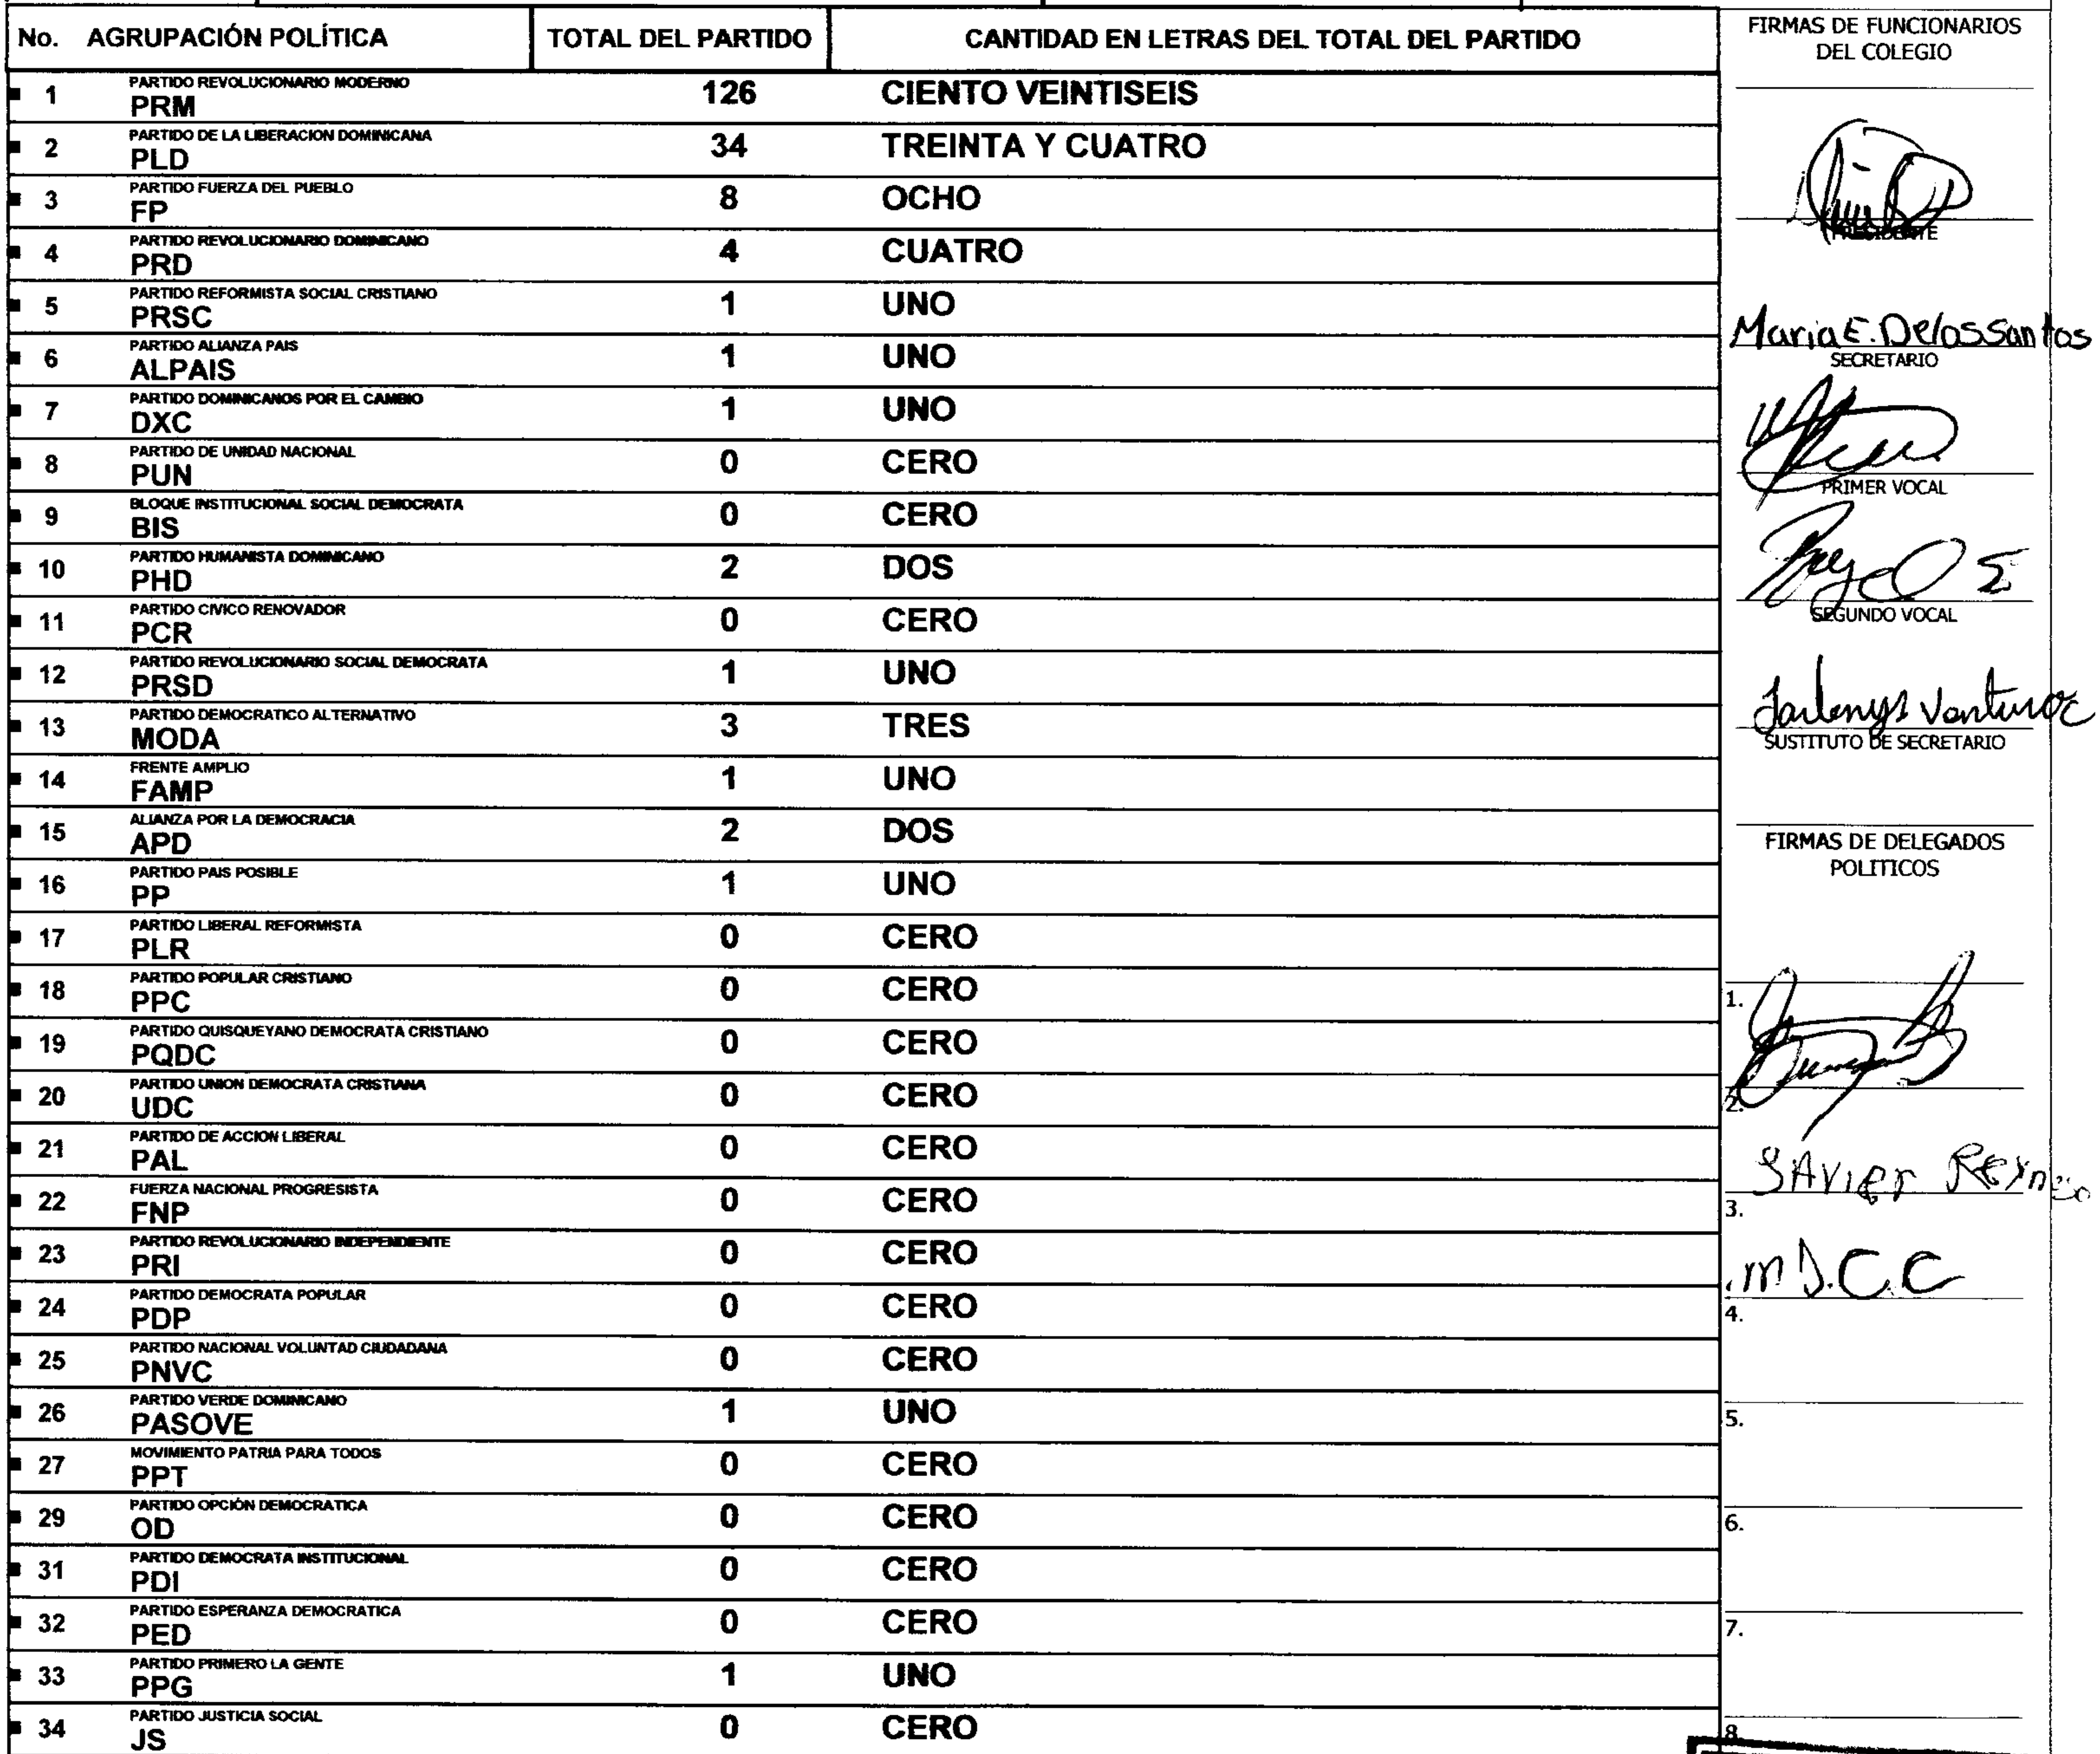 No. AGRUPACIÓN POLÍTICA TOTAL DEL PARTIDO CANTIDAD EN LETRAS DEL TOTAL DEL PARTIDO
1 PARTIDO REVOLUCIONARIO MODERNO
PRM 126 CIENTO VEINTISEIS
2 PARTIDO DE LA LIBERACION DOMINICANA
PLD 34 TREINTA Y CUATRO
3 PARTIDO FUERZA DEL PUEBLO
FP 8 OCHO
4 PARTIDO REVOLUCIONARIO DOMINICANO
PRD 4 CUATRO
5 PARTIDO REFORMISTA SOCIAL CRISTIANO
PRSC 1 UNO
6 PARTIDO ALIANZA PAIS
ALPAIS 1 UNO
7 PARTIDO DOMINICANOS POR EL CAMBIO
DXC 1 UNO
8 PARTIDO DE UNIDAD NACIONAL
PUN 0 CERO
9 BLOQUE INSTITUCIONAL SOCIAL DEMOCRATA
BIS 0 CERO
10 PARTIDO HUMANISTA DOMINICANO
PHD 2 DOS
11 PARTIDO CIVICO RENOVADOR
PCR 0 CERO
12 PARTIDO REVOLUCIONARIO SOCIAL DEMOCRATA
PRSD 1 UNO
13 PARTIDO DEMOCRATICO ALTERNATIVO
MODA 3 TRES
14 FRENTE AMPLIO
FAMP 1 UNO
15 ALIANZA POR LA DEMOCRACIA
APD 2 DOS
16 PARTIDO PAIS POSIBLE
PP 1 UNO
17 PARTIDO LIBERAL REFORMISTA
PLR 0 CERO
18 PARTIDO POPULAR CRISTIANO
PPC 0 CERO
19 PARTIDO QUISQUEYANO DEMOCRATA CRISTIANO
PQDC 0 CERO
20 PARTIDO UNION DEMOCRATA CRISTIANA
UDC 0 CERO
21 PARTIDO DE ACCION LIBERAL
PAL 0 CERO
22 FUERZA NACIONAL PROGRESISTA
FNP 0 CERO
23 PARTIDO REVOLUCIONARIO INDEPENDIENTE
PRI 0 CERO
24 PARTIDO DEMOCRATA POPULAR
PDP 0 CERO
25 PARTIDO NACIONAL VOLUNTAD CIUDADANA
PNVC 0 CERO
26 PARTIDO VERDE DOMINICANO
PASOVE 1 UNO
27 MOVIMIENTO PATRIA PARA TODOS
PPT 0 CERO
29 PARTIDO OPCIÓN DEMOCRATICA
OD 0 CERO
31 PARTIDO DEMOCRATA INSTITUCIONAL
PDI 0 CERO
32 PARTIDO ESPERANZA DEMOCRATICA
PED 0 CERO
33 PARTIDO PRIMERO LA GENTE
PPG 1 UNO
34 PARTIDO JUSTICIA SOCIAL
JS 0 CERO
FIRMAS DE FUNCIONARIOS
DEL COLEGIO
PRESIDENTE
Maria E. Delos Santos
SECRETARIO
PRIMER VOCAL
SEGUNDO VOCAL
SUSTITUTO DE SECRETARIO
FIRMAS DE DELEGADOS
POLITICOS
1.
2.
SAVIER
3.
M D.C.C
4.
5.
6.
7.
8.